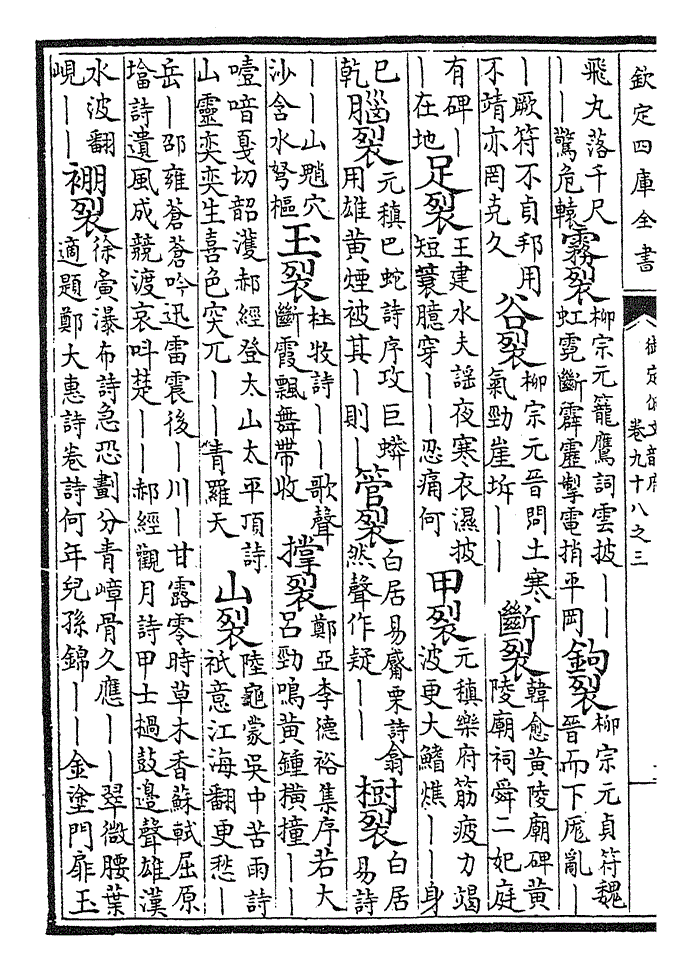 欽定四庫全書
御定佩文韻府
卷九十八之三
飛丸落千尺
｜｜驚危轅
霧裂
柳宗元籠鷹詞雲披｜｜
虹霓斷霹靂掣電捎平岡
鉤裂
柳宗元貞符魏
晉而下厖亂｜
｜厥符不貞邦用
不靖亦罔克久
谷裂
柳宗元晉問土寒
氣勁崖坼｜｜
斷裂
韓愈黃陵廟碑黃
陵廟祠舜二妃庭
有碑｜
｜在地
足裂
王建水夫謠夜寒衣濕披
短蓑臆穿｜｜忍痛何
甲裂
元稹樂府筋疲力竭
波更大鰭燋｜｜身
巳
乾
腦裂
元稹巴蛇詩序攻巨蟒
用雄黃煙被其｜則｜
管裂
白居易觱栗詩翕
然聲作疑｜｜
樹裂
白居
易詩
｜｜山魈穴
沙含水弩樞
玉裂
杜牧詩｜｜歌聲
斷霞飄舞帶收
撑裂
鄭亞李德裕集序若大
呂勁鳴黃鍾橫撞｜｜
噎喑戛切韶濩郝經登太山太平頂詩
山靈奕奕生喜色突兀｜｜青羅天
山裂
陸龜蒙吳中苦雨詩
祇意江海翻更愁｜
岳｜邵雍蒼蒼吟迅雷震後｜川｜甘露零時草木香蘇軾屈原
塔詩遺風成競渡哀叫楚｜｜郝經觀月詩甲士撾鼓邊聲雄漢
水波翻
峴｜｜
裂
徐夤瀑布詩急恐劃分青嶂骨久應｜｜翠微腰葉
適題鄭大惠詩卷詩何年兒孫錦｜｜金塗門扉玉